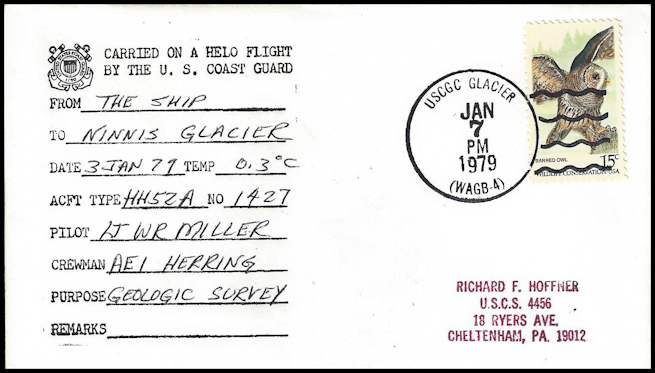 CARRIED ON A HELO FLIGHT
BY THE U. S. COAST GUARD
FROM THE SHIP
TO NINNIS GLACIER
DATE 3 JAN 79 TEMP 0.3°C
ACFT TYPE HH52A NO 1427
PILOT LT WR MILLER
CREWMAN AE1 HERRING
PURPOSE GEOLOGIC SURVEY
REMARKS
USCGC GLACIER
JAN
7
PM
1979
(WAGB-4)
BARRED OWL 15c
WILDLIFE CONSERVATION USA
RICHARD F. HOFFNER
U.S.C.S. 4456
18 RYERS AVE.
CHELTENHAM, PA. 19012